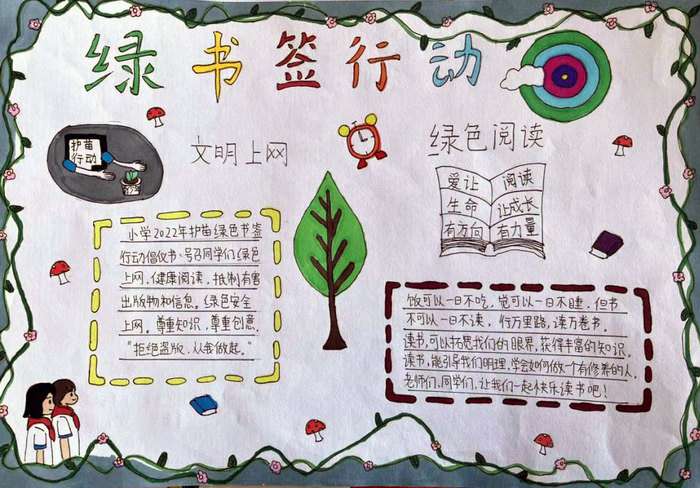 绿书签行动
护苗
行动
文明上网
绿色阅读
爱让
生命
有方向
阅读
让成长
有力量
小学2022年护苗绿色书签
行动倡议书:号召同学们绿色
上网,健康阅读,抵制有害
出版物和信息。绿色安全
上网。尊重知识,尊重创意.
"拒绝盗版,从我做起。"
饭可以一日不吃,觉可以一日不睡,但书
不可以一日不读,行万里路,读万卷书。
读书,可以拓思我们的眼界,获得丰富的知识。
读书,能引导我们明理,学会如何做一个有修养的人。
老师们,同学们,让我们一起快乐读书吧!